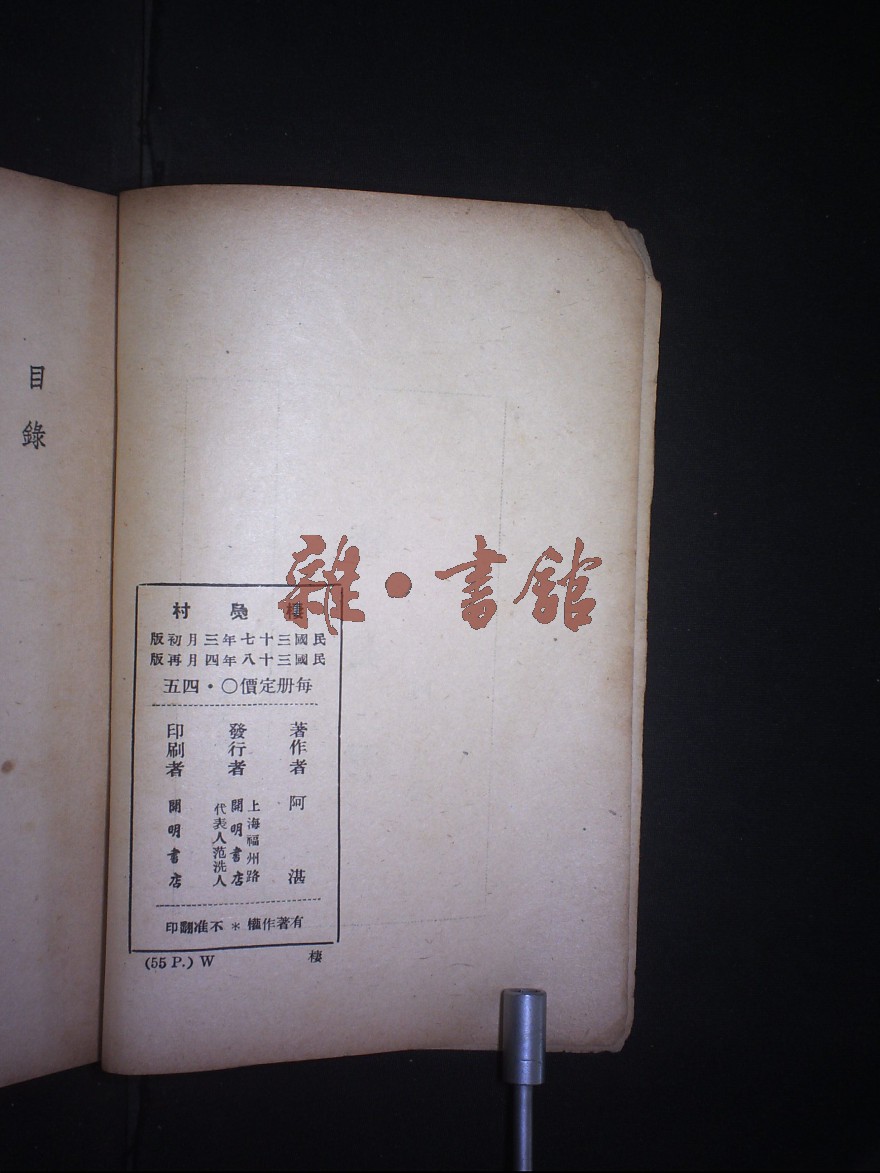 目錄
雜·書館
棲鳧村
民國三十七年三月初版
民國三十八年四月再版
每册定價〇・四五
著作者 阿湛
發行者
上海福州路
開明書店
代表人范洗人
印刷者 開明書店
有著作權＊不准翻印
棲
(55 P.) W